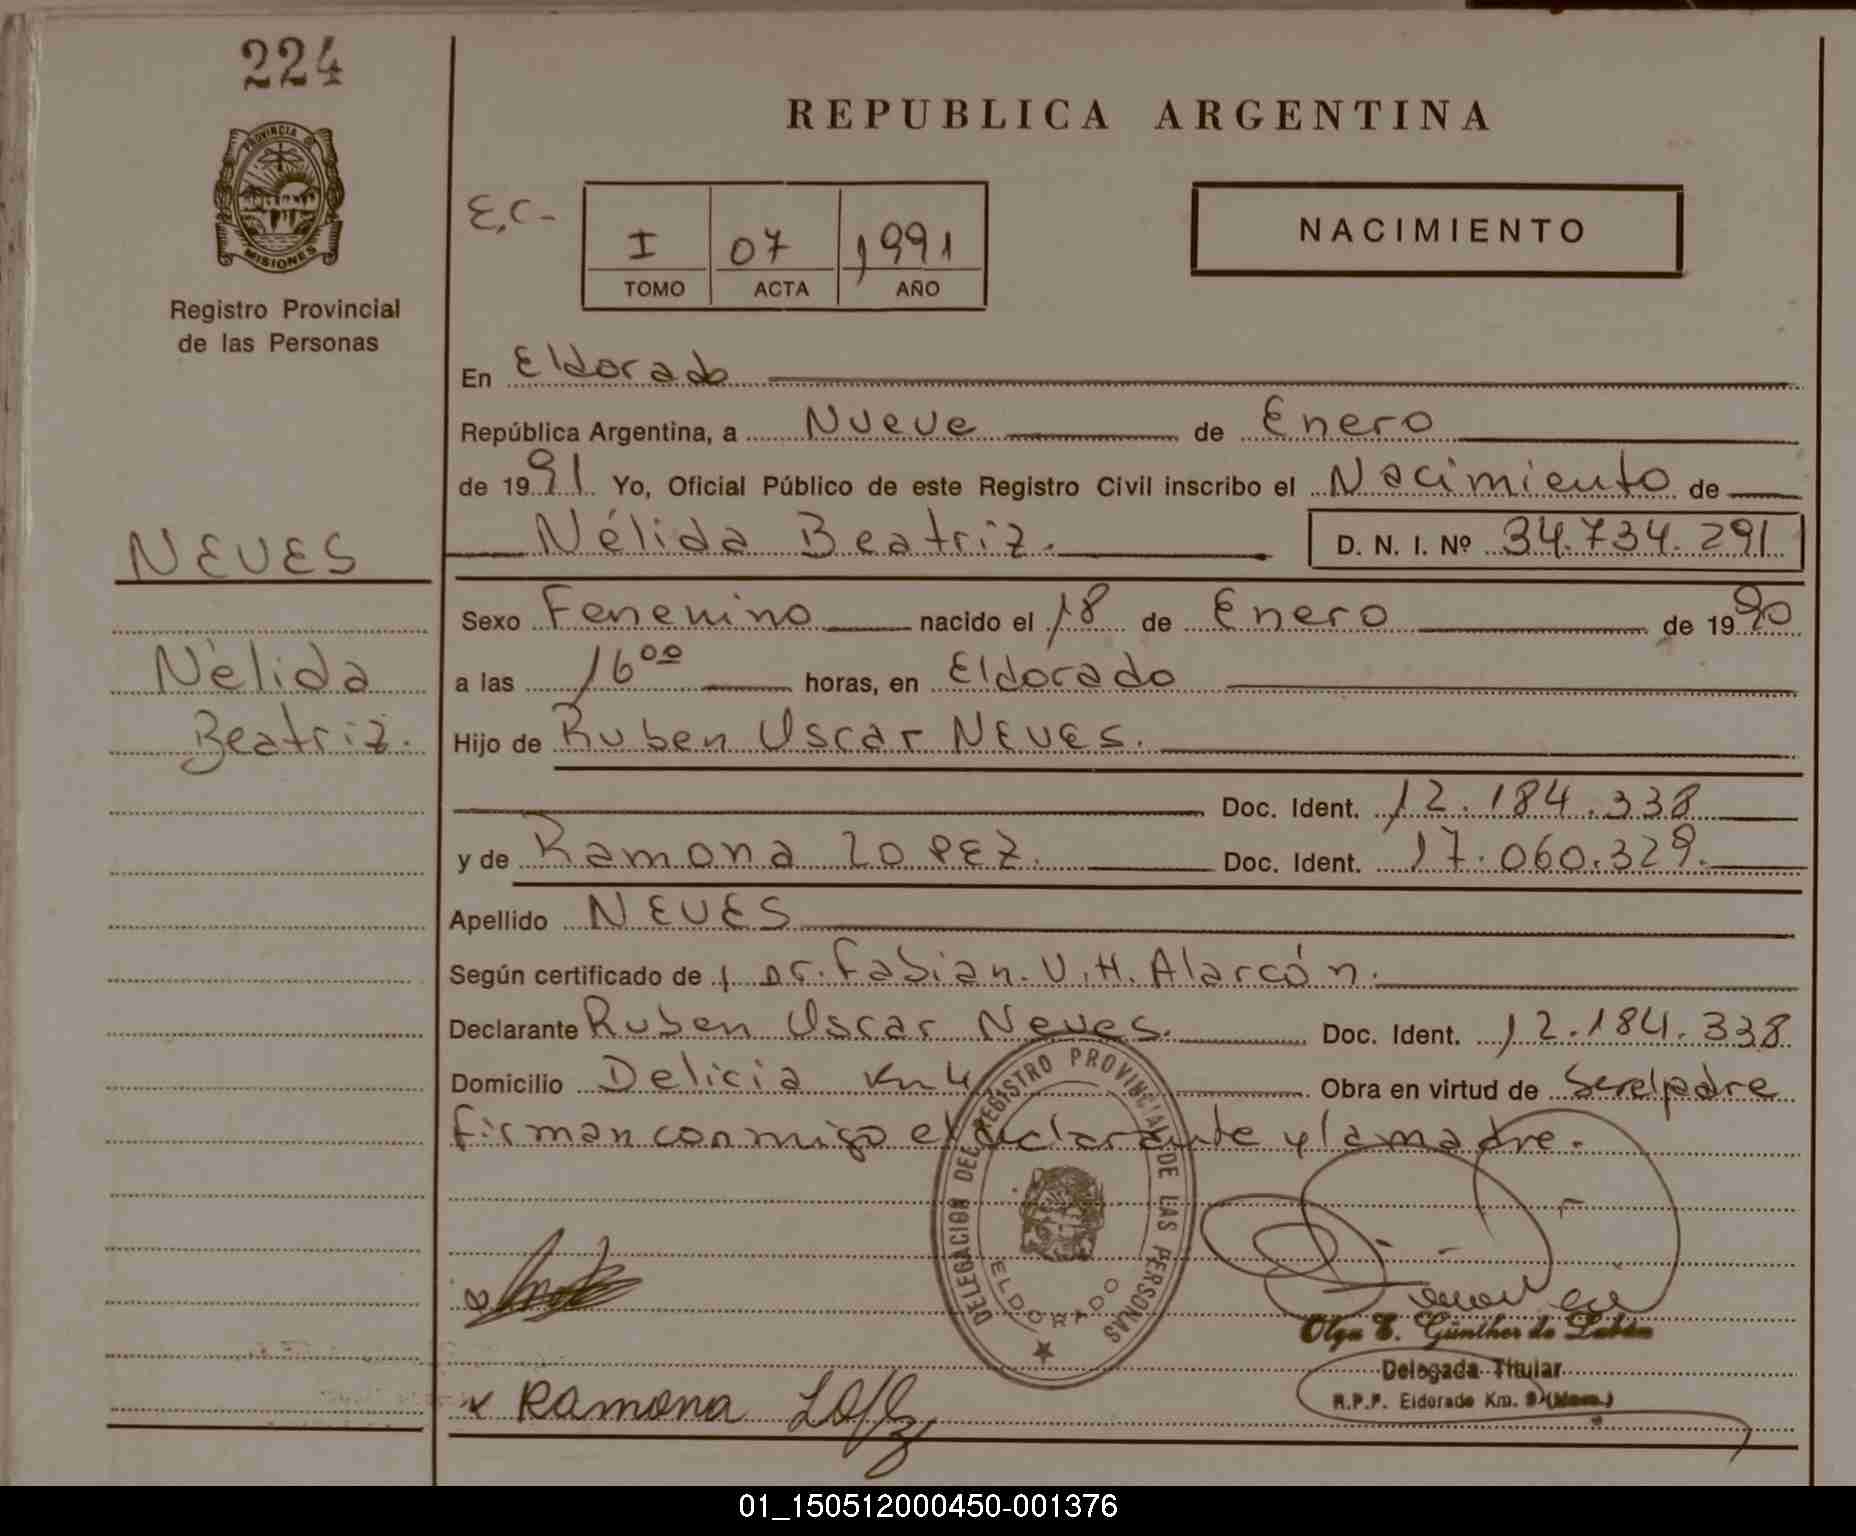 224
PROVINCIA DE
MISIONES
Registro Provincial
de las Personas
NEVES
Nélida
Beatriz.
REPUBLICA ARGENTINA
E.C-
I 07 1991
TOMO ACTA AÑO
NACIMIENTO
En Eldorado
República Argentina, a Nueve de Enero
de 1991 Yo, Oficial Público de este Registro Civil inscribo el Nacimiento de
Nélida Beatriz. D. N. I. Nº 34.734.291
Sexo Femenino nacido el 18 de Enero de 1990
a las 16⁰⁰ horas, en Eldorado
Hijo de Ruben Oscar NEVES.
Doc. Ident. 12.184.338
y de Ramona LOPEZ. Doc. Ident. 17.060.329.
Apellido NEVES
Según certificado de Dr. Fabian. V. H. Alarcón.
Declarante Ruben Oscar Neves. Doc. Ident. 12.184.338
Domicilio Delicia Km 4 Obra en virtud de Ser el padre
firman conmigo el declarante y la madre.
DELEGACION DEL REGISTRO PROVINCIAL DE LAS PERSONAS
ELDORADO
Olga E. Günther de Labán
Delegada Titular
R.P.P. Eldorado Km. 9 (Mnes.)
x Ramona López
01_150512000450-001376